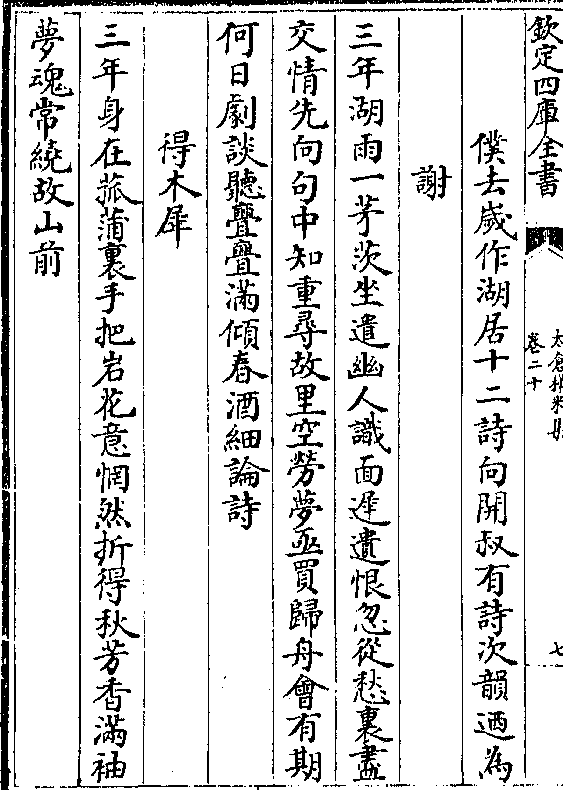 欽定四庫全書
太倉稊米集
卷二十
七
僕去歲作湖居十二詩向開叔有詩次韻迺為
謝
三年湖雨一茅茨坐遣幽人識面遲遺恨忽從愁裏盡
交情先向句中知重尋故里空勞夢亟買歸舟會有期
何日劇談聽亹亹滿傾春酒細論詩
得木犀
三年身在菰蒲裏手把岩花意惘然折得秋芳香滿袖
夢魂常繞故山前